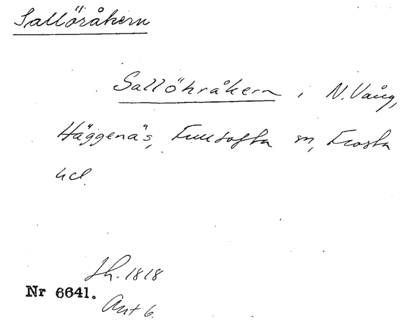 Sallöråkern
Sallöhråkern, N. Vång,
Häggenäs, Fulltofta sn, Frosta
hd.
Sh. 1818
Nr 6641.
Akt 6.